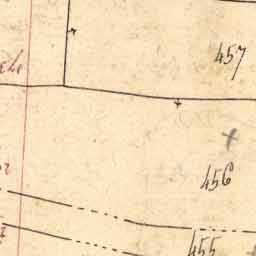 457
456
455